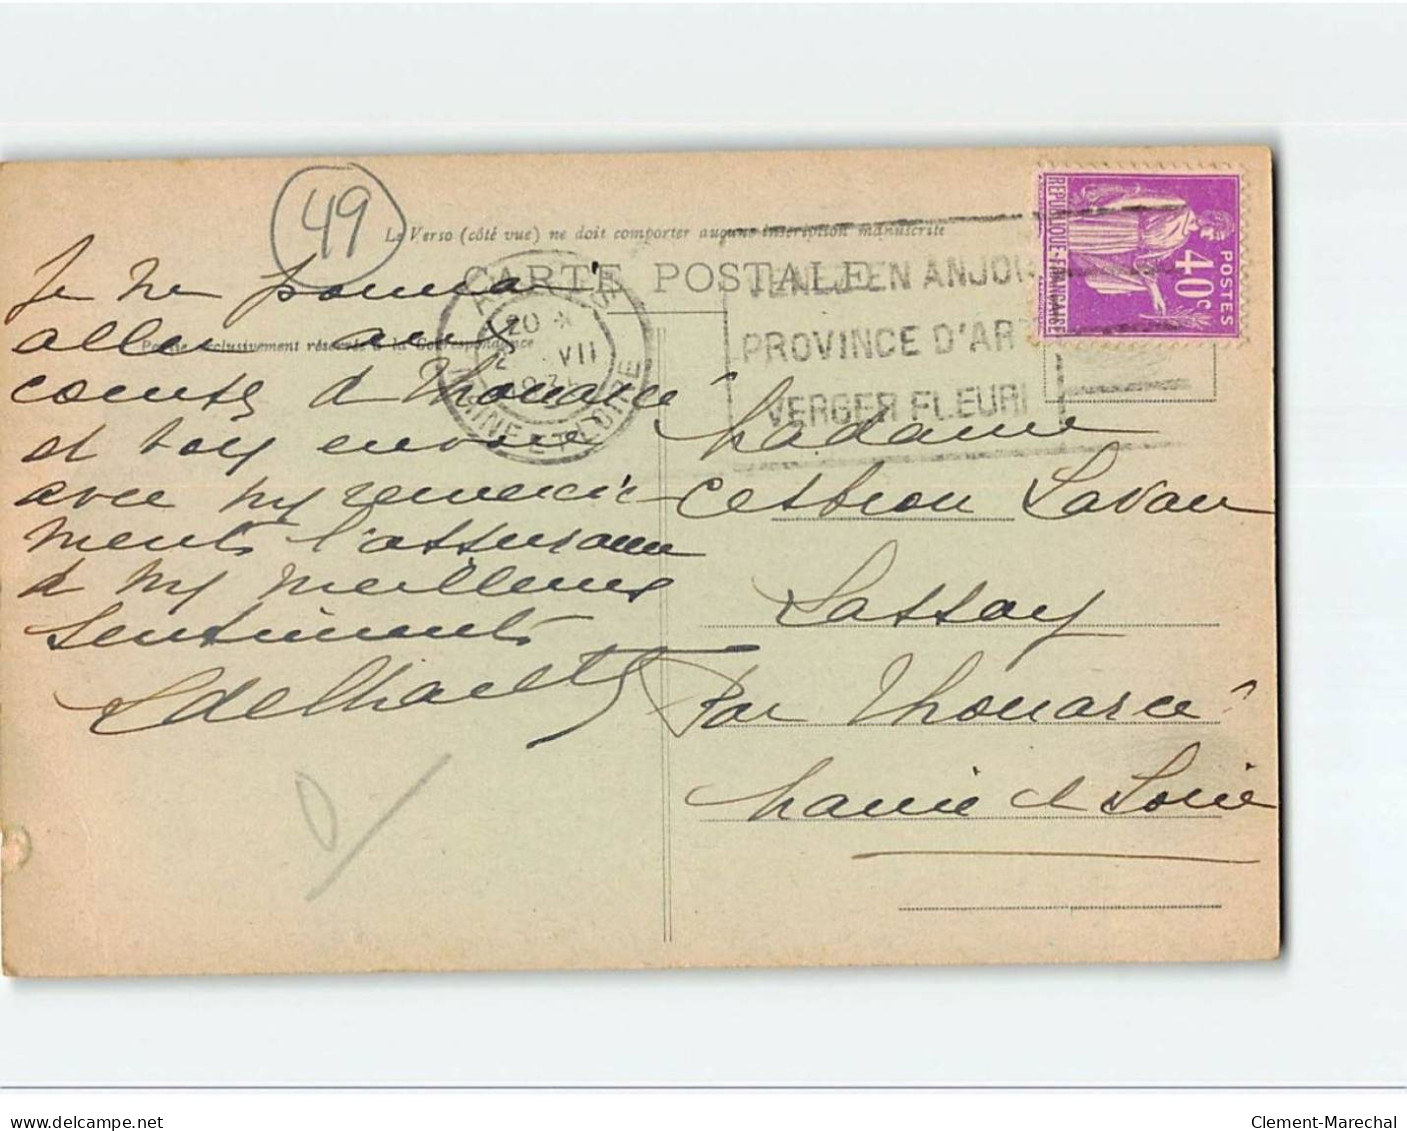 49
Le Verso (côté vue) ne doit comporter aucune inscription manuscrite
CARTE POSTALE
Partie exclusivement réservée à la Correspondance
ANGERS
20 *
VII
MAINE ET LOIRE
VENEZ EN ANJOU
PROVINCE D'ART
VERGER FLEURI
REPUBLIQUE-FRANÇAISE
POSTES
40c
Je ne pourrai
aller au
comité de Thouarcé
et vous envoie
avec my remercie
ments l'assurance
de my meilleurs
sentiments
Madame
Cesbron Lavau
Lassay
Par Thouarcé
Maine et Loire
Clement-Marechal